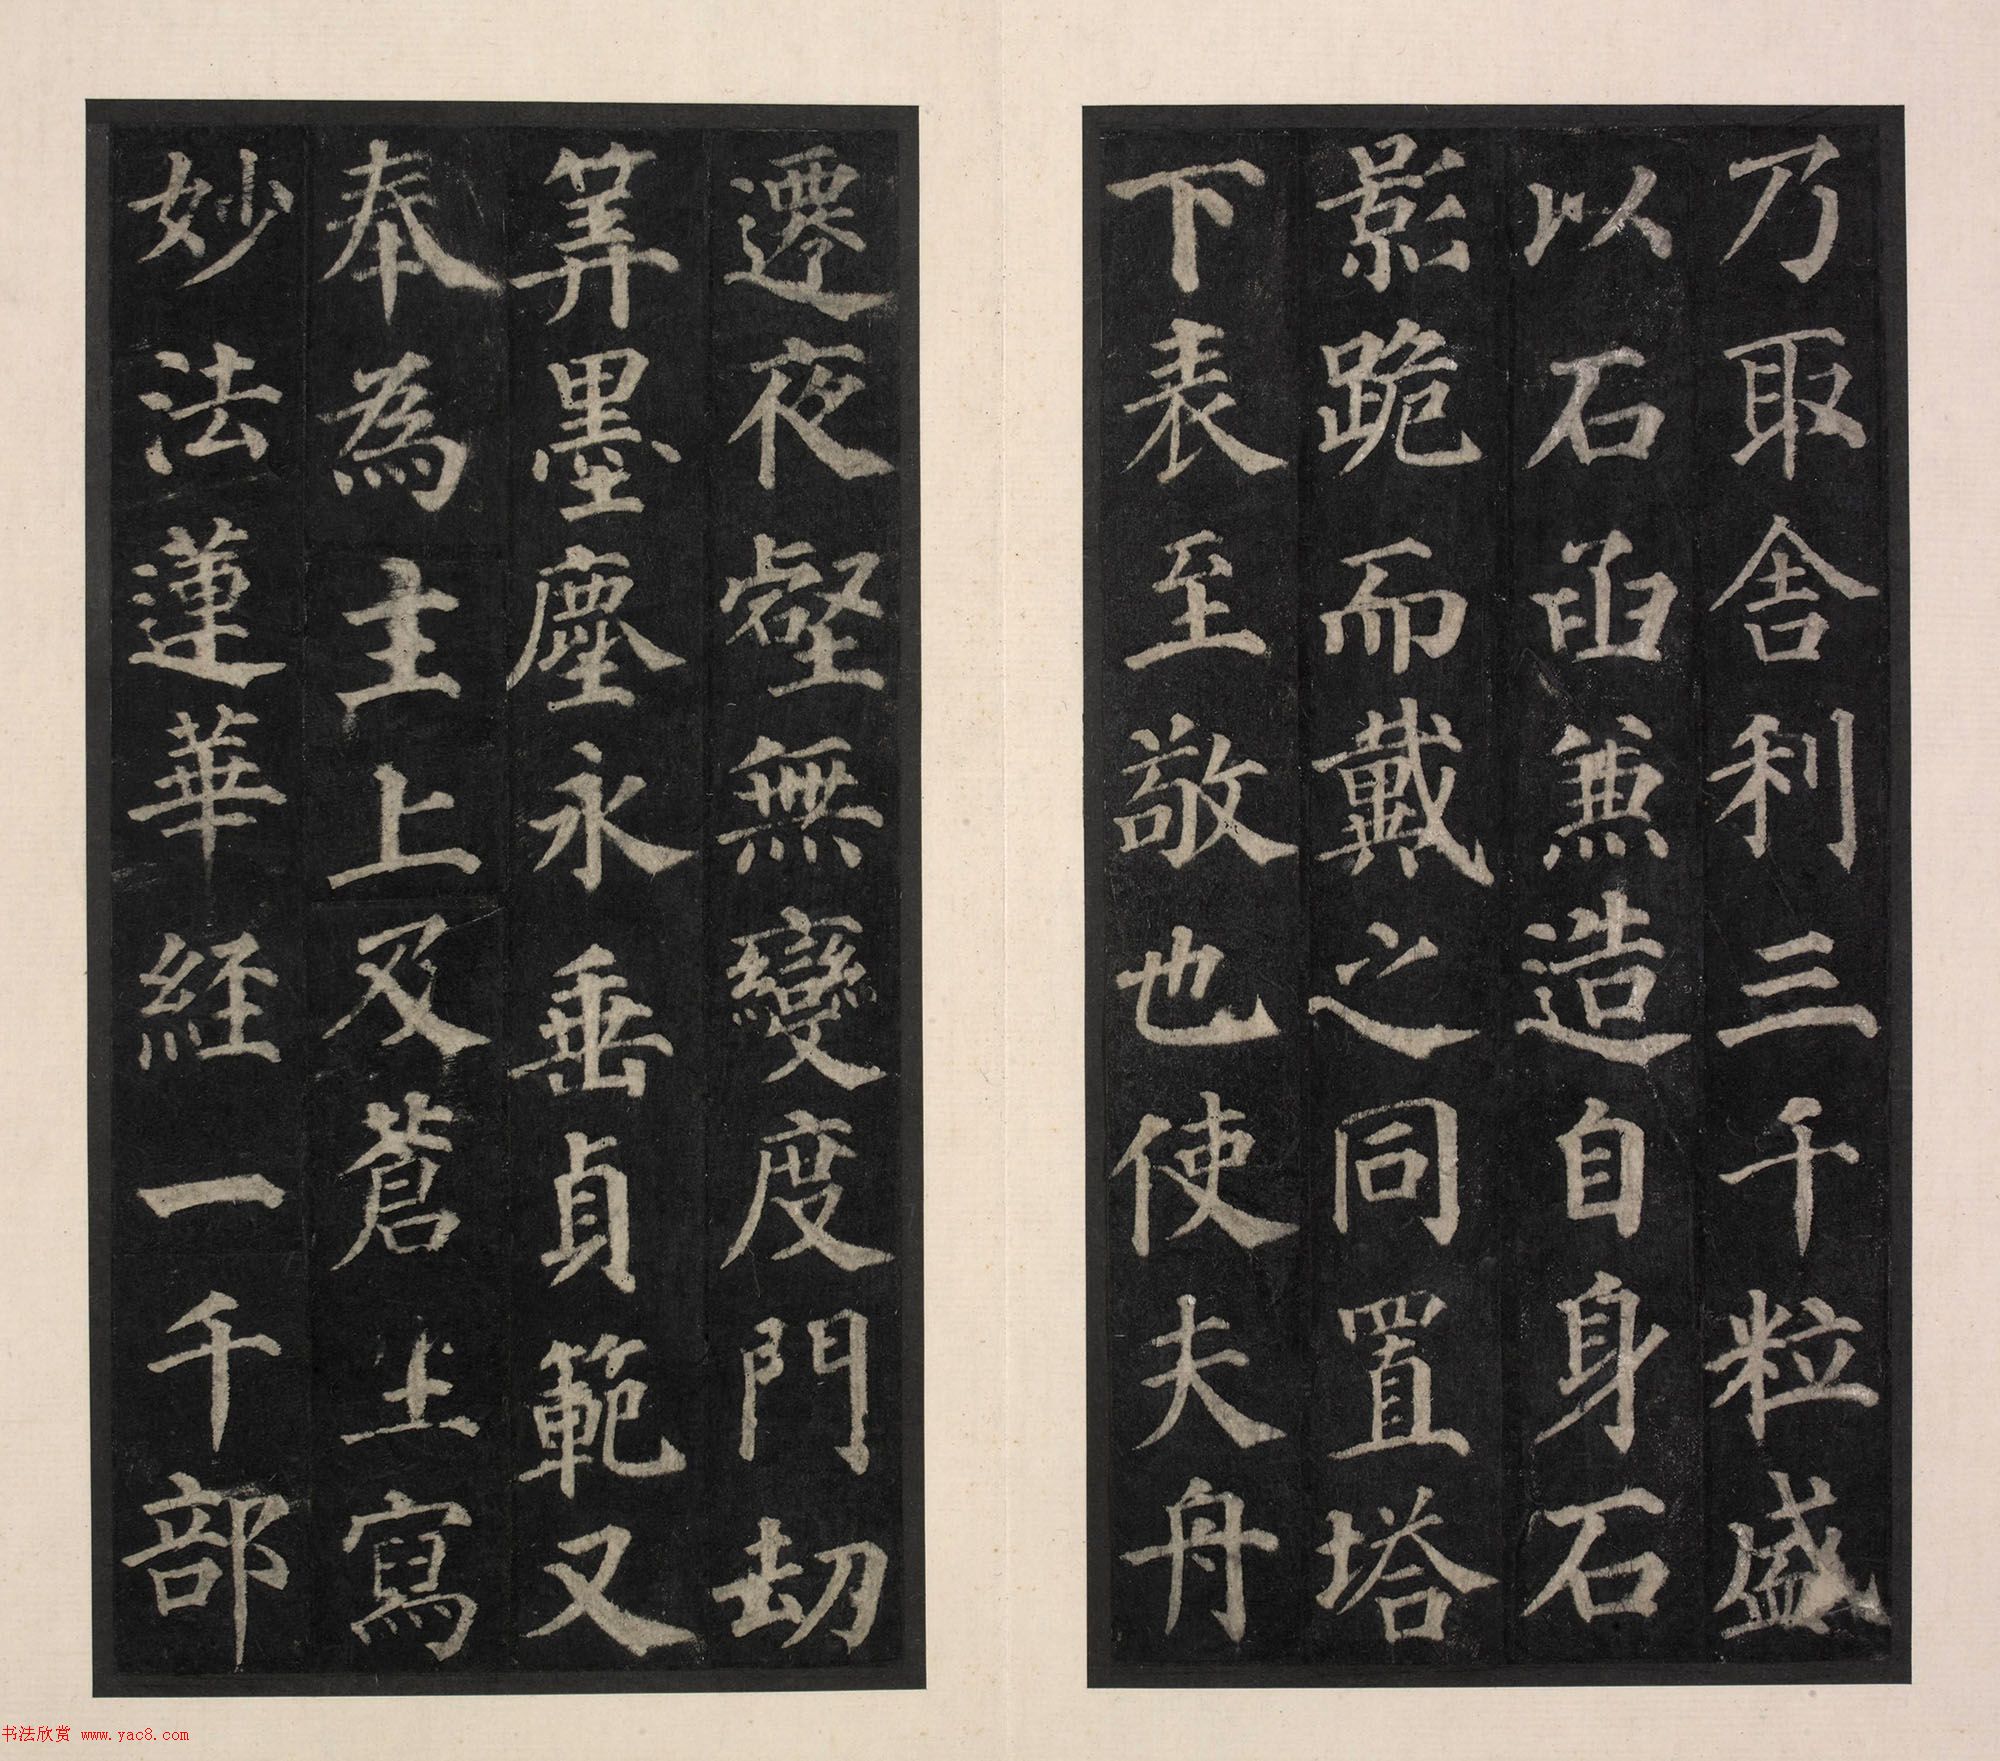 乃取舍利三千粒盛
以石函兼造自身石
影跪而戴之同置塔
下表至敬也使夫舟
遷夜壑無變度門劫
筭墨塵永垂貞範又
奉為主上及蒼生寫
妙法蓮華經一千部
书法欣赏 www.yac8.com